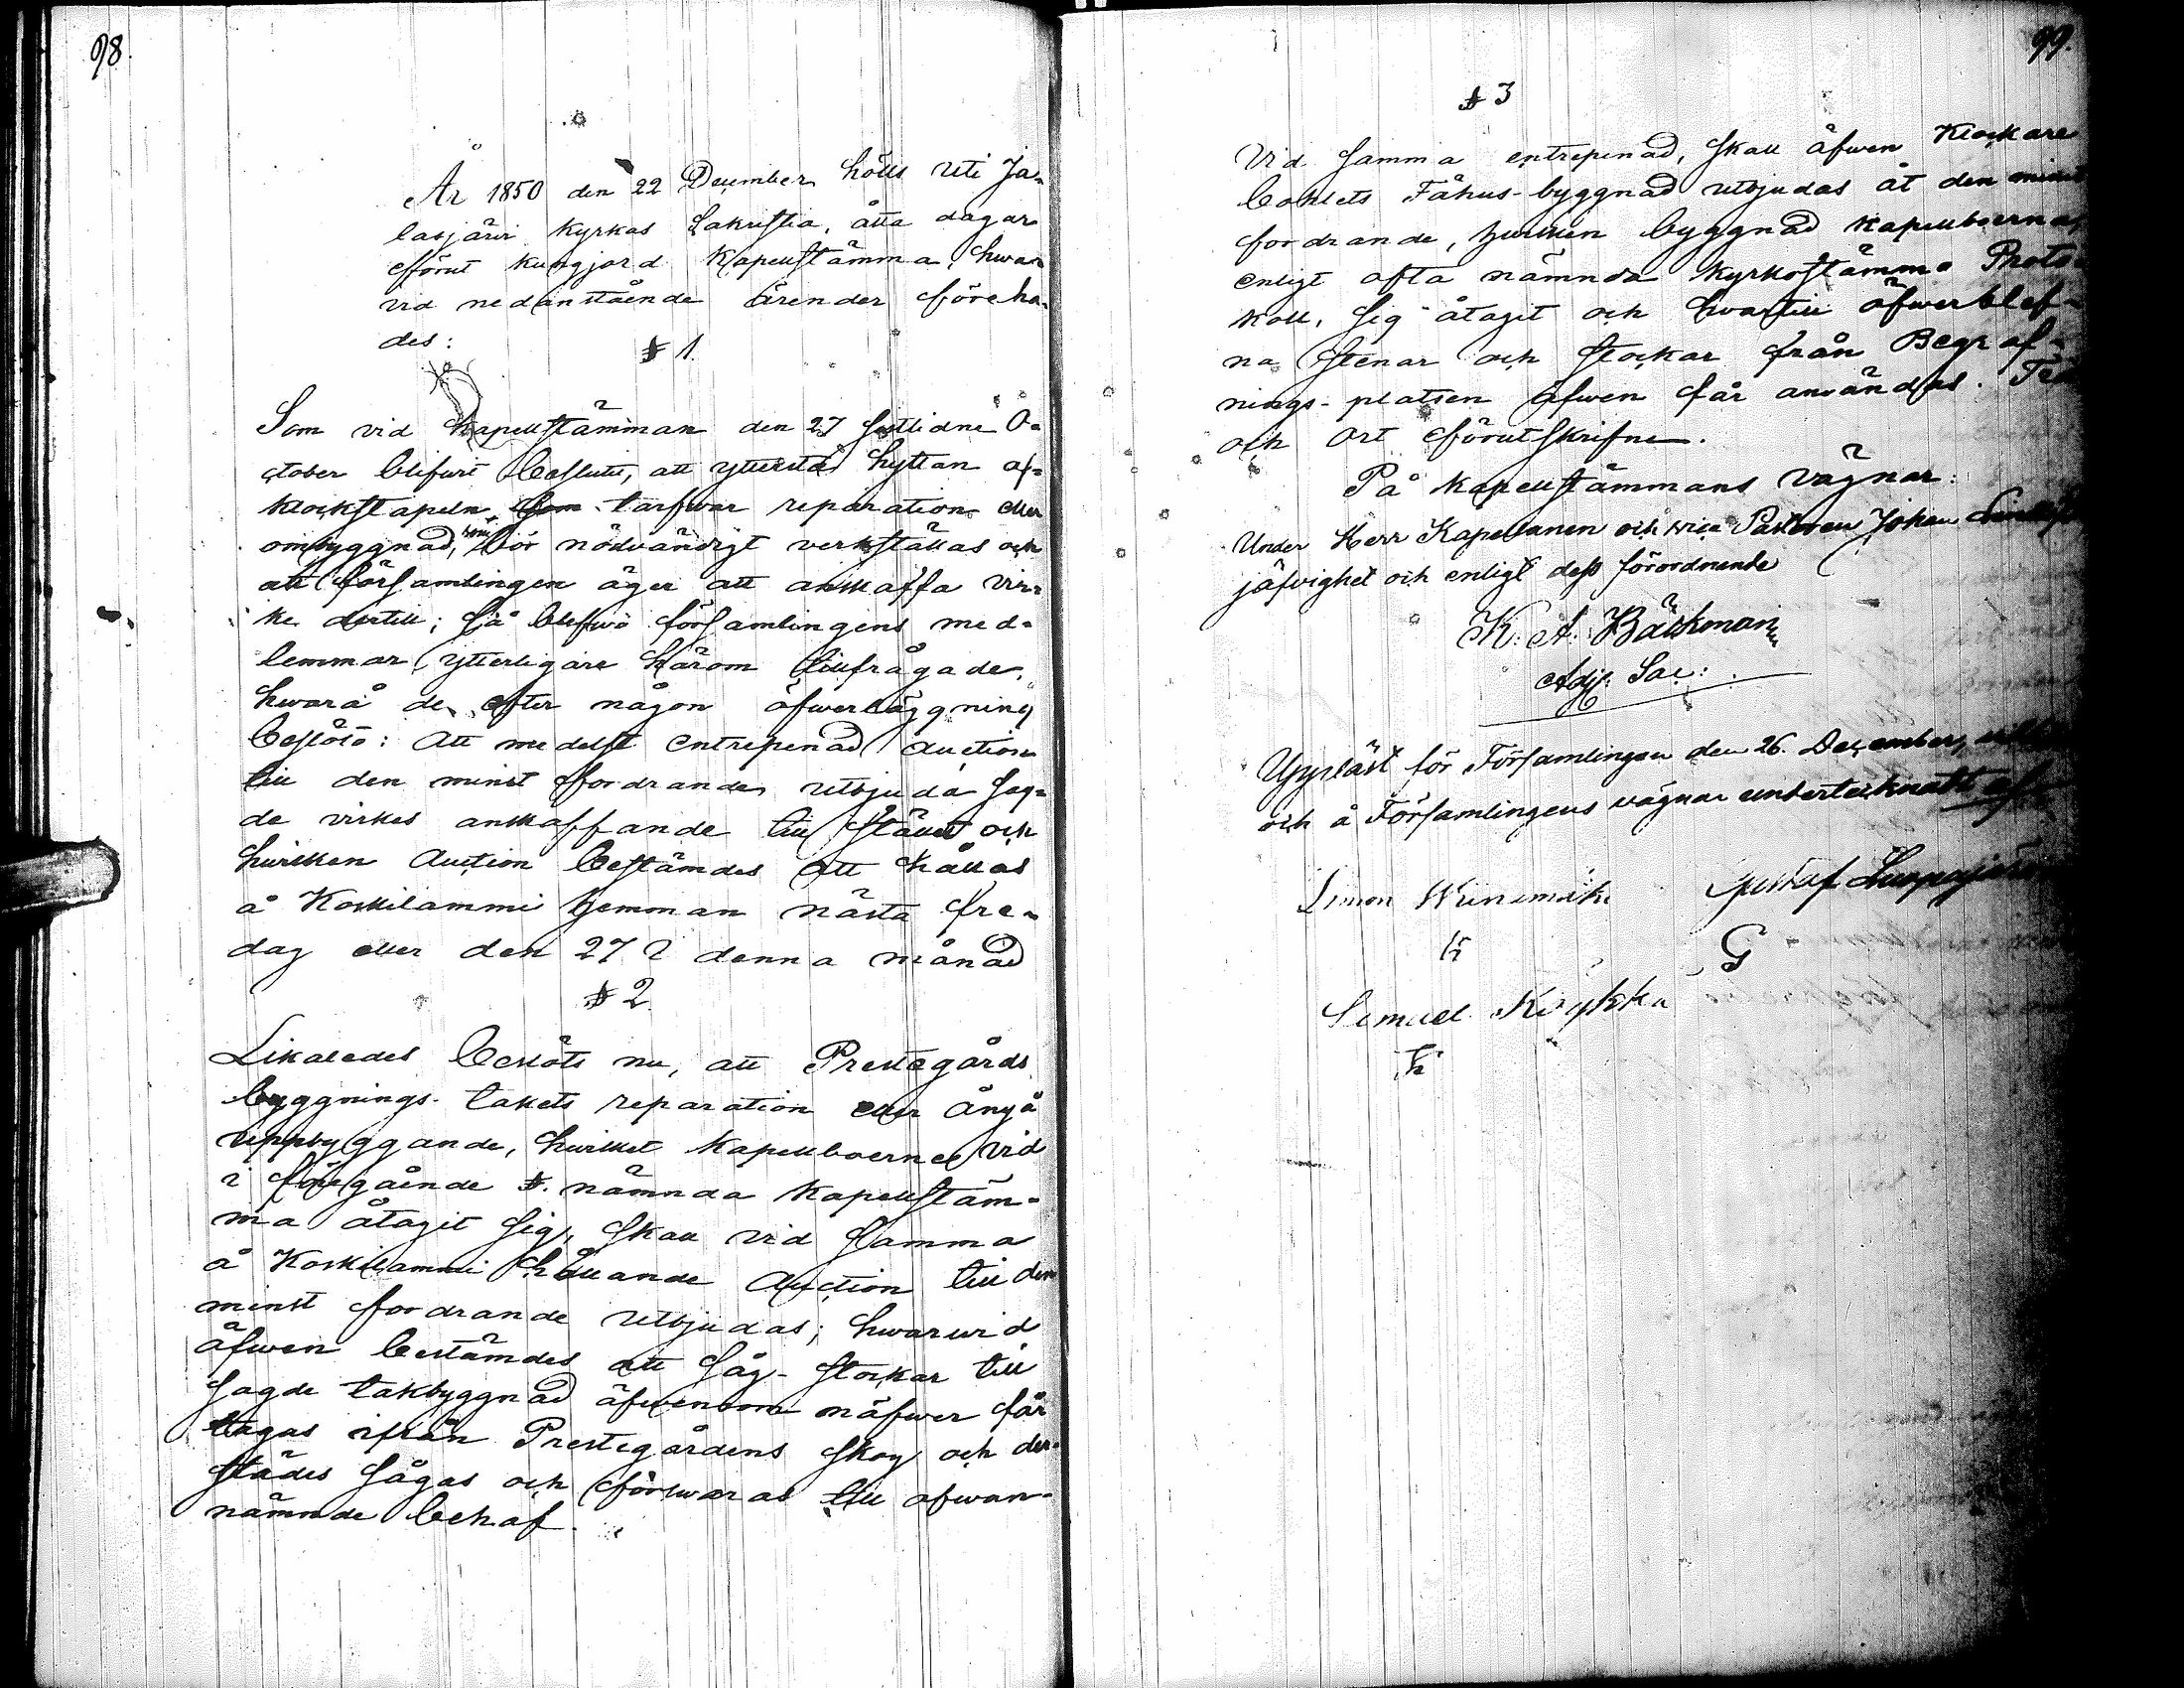 98.
År 1850 den 22 December hölls uti Ja-
lasjärvi kyrkas Sakristia, åtta dagar
förut kungjord Kapellstämma, hwar-
vid nedanstående ärender föreha-
des:
§ 1.
Som vid Kapellstämman den 27 sistlidne O-
ctober blifvit beslutit, att yttersta hyttan af
klockstapeln, som tarfvar reparation eller
ombyggnad, bör nödvändigt verkställas och
att församlingen äger att anskaffa vir-
ke dertill; så blefwo församlingens med-
lemmar ytterligare härom tillfrågade,
hwarå de efter någon öfwerläggning
beslöto: Att medelst entrepenad auction
till den minst fordrande utbjuda sag-
de virkes anskaffande till stället och
hwilken Auction bestämdes att hållas
å Koskilammi hemman nästa fre-
dag eller den 27 i denna månad
§ 2.
Likaledes beslöts nu, att Prestegårds
byggnings-takets reparation eller ånyå
uppbyggande, hwilket kapellboerne vid
i föregående §. nämnda kapellstäm-
ma åtagit sig, skall vid samma
å Koskilammi hållande Auction till den
minst fordrande utbjudas; hwarwid
äfwen bestämdes att såg-stockar till
sagde takbyggnad äfwensom näfwer får
tagas ifrån Prestegårdens skog och der-
städes sågas och förwaras till ofwan-
nämnde behof.
99.
§ 3
Vid samma entrepenad, skall äfwen Klockare
bohlets Fähus-byggnad utbjudas åt den minst
fordrande, hwilken byggnad kapellboerna,
enligt ofta nämnda kyrkostämmo Proto-
koll, sig åtagit och hwartill öfwerblef-
na stenar och stockar från Begraf-
nings-platsen äfwen får användas.
och Ort förutskrifne.
På kapellstämmans vägnar:
Under Herr Kapellanen och vice Pastoren Johan
jäfvighet och enligt dess förordnande
K. A. Bäckman
Adj: Sac:
Uppläst för Församlingen den 26. December,
och å Församlingens vägnar undertecknadt af
Simon Gustaf
G
Samuel Köykkä